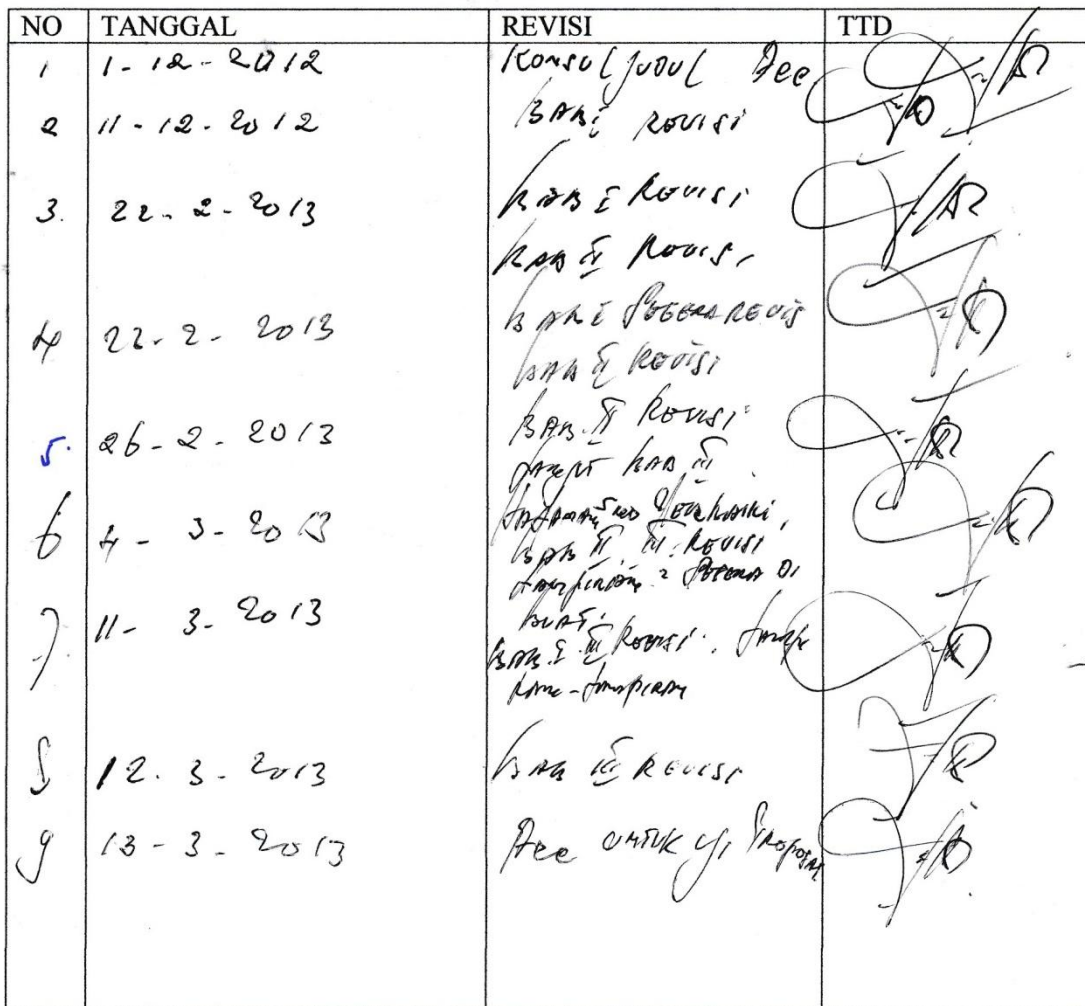 NO TANGGAL REVISI TTD
1 1-12-2012 Konsul judul Acc
2 11-12-2012 BAB I REVISI
3. 22-2-2013 BAB I REVISI
BAB II REVISI
4 22-2-2013 BAB I SEGERA REVIS
BAB II REVISI
5. 26-2-2013 BAB II REVISI
BAB III
6 4-3-2013
BAB II III REVISI
SEGERA DI
BUAT.
7 11-3-2013 BAB I III REVISI.
8 12.3-2013 BAB III REVISI
9 13-3-2013 Acc UNTUK Uji Proposal